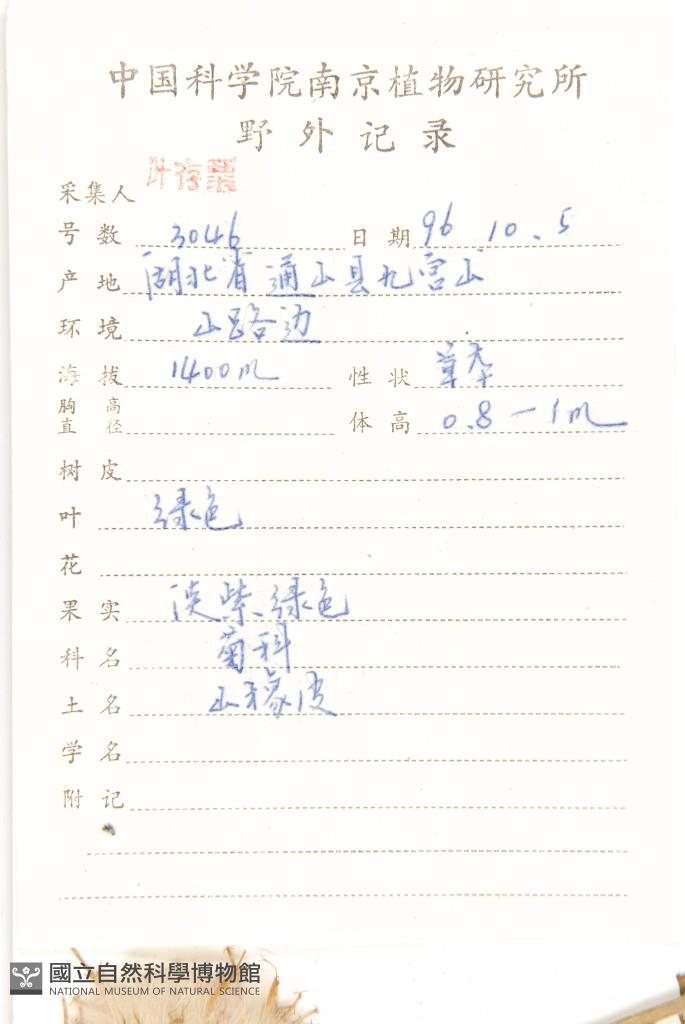 中国科学院南京植物研究所
野外记录
采集人 叶存粟
号数 3046 日期 96.10.5
产地 湖北省通山县九宫山
环境 山路边
海拔 1400m 性状 草本
胸高直径 体高 0.8-1m
树皮
叶 绿色
花
果实 淡紫、绿色
科名 菊科
土名 山
学名
附记
國立自然科學博物館
NATIONAL MUSEUM OF NATURAL SCIENCE